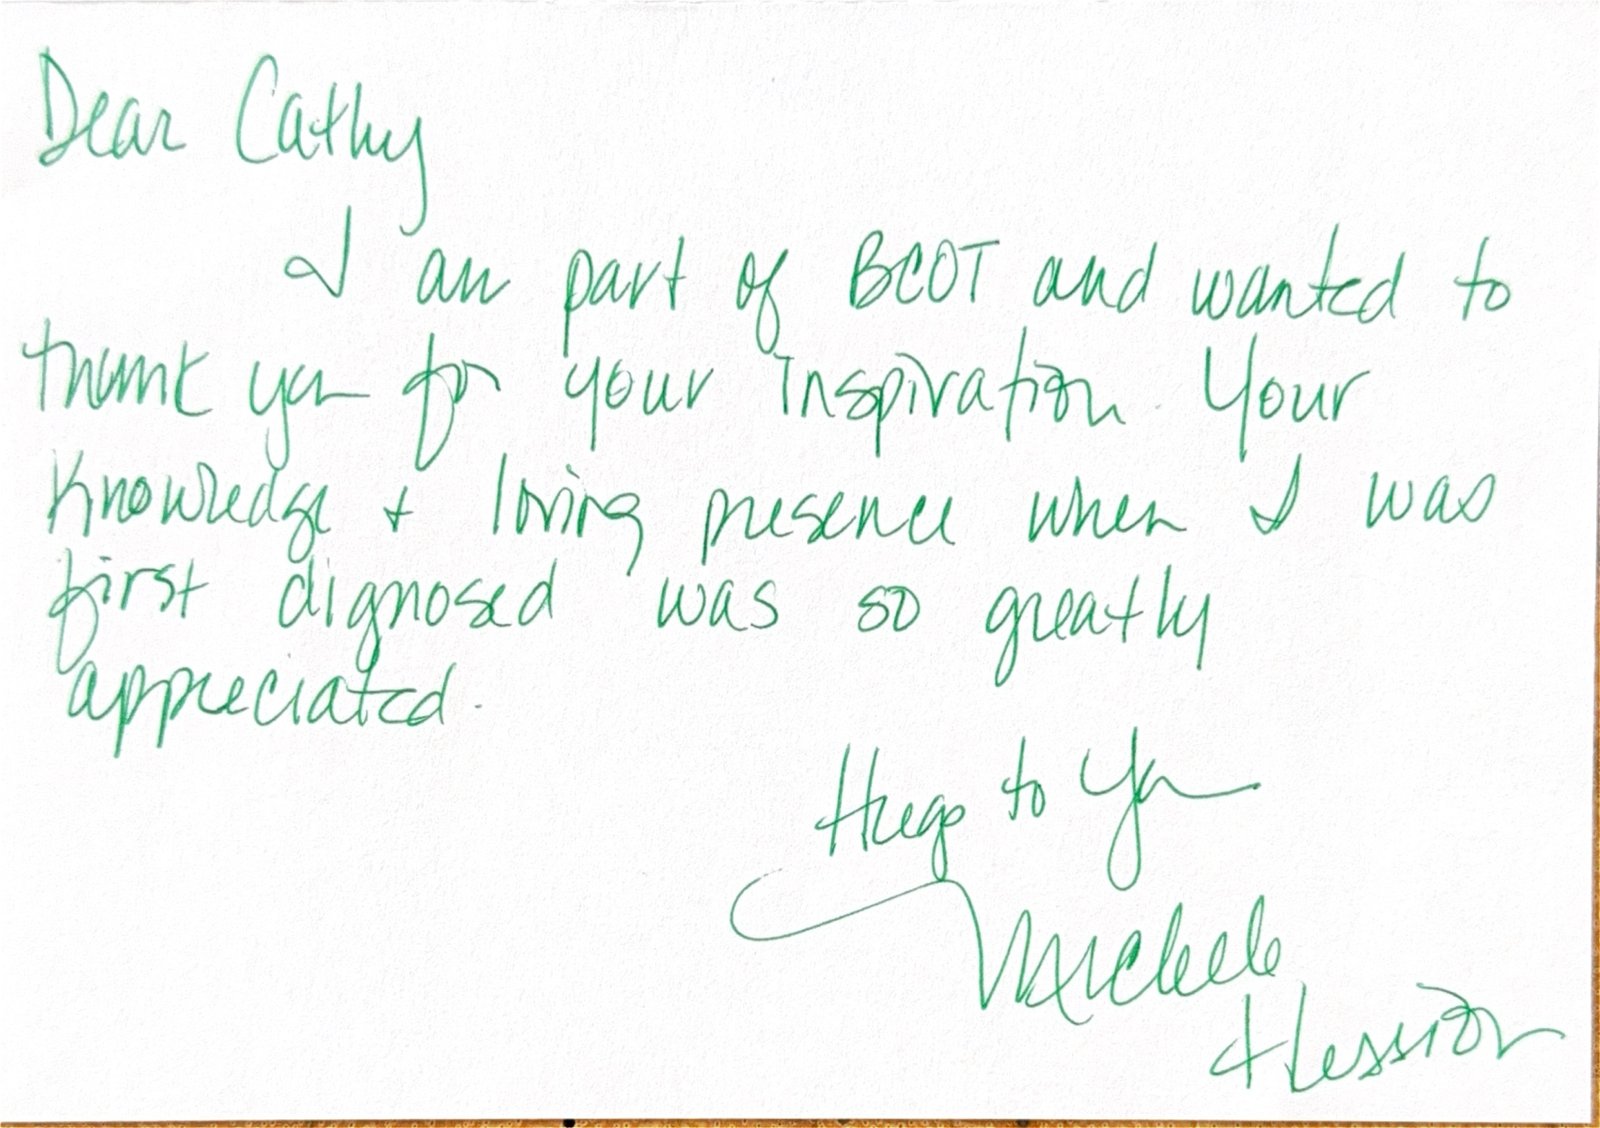 Dear Cathy
I am part of BCOT and wanted to
thank you for your inspiration. Your
Knowledge + loving presence when I was
first dignosed was so greatly
appreciated.
Hugs to you
Michele
Hession